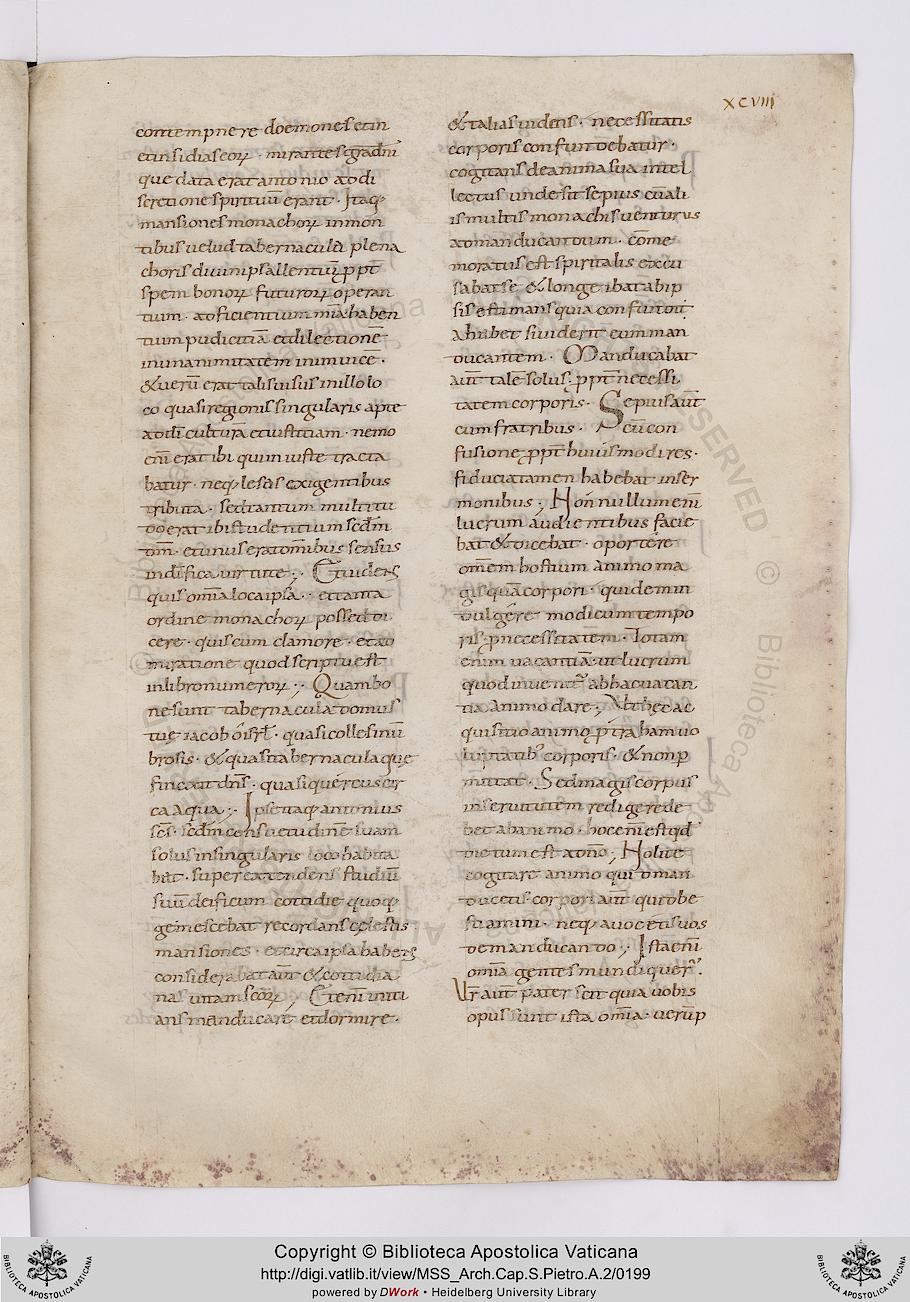 XCVIII
contempnere doemones et in
et insidias eoꝝ · mirantes gradm̄
que data erat antonio ad di
scretione spirituū erant · Itaq·
mansiones monachoꝝ in mon
tibus uelud tabernacula plena
choris diuinis psallentiū ꝓpt̄
spem bonoꝝ futuroꝝ operan
tium · ad ficientium mīa haben
tium pudicitiā et dilectionē
in unanimitatem inimicē ·
& uerū erat talis uisus in illo lo
co quasi regionis singularis apte
ad dī culturā et iustitiam · nemo
enī erat ibi qui iniuste tracta
batur · neq; lesus exigentibus
tributa · sed tantum multitu
do erat ibi studentium secdm̄
dm̄ · et unus erat omībus sensus
indīfica uirtute ·, Et uidens
quis omīa loca ipsa · et tanta
ordine monachoꝝ possed di
cere · quis cum clamore · et ad
miratione quod scriptū est
in libro numeroꝝ ·, Quam bo
ne sunt tabernacula domus
tuę iacob ō isrl̄ · quasi colles inū
brosis · & quasi tabernacula quę
fincait dn̄s · quasi quercus cir
ca aqua ·, Ipse itaq; antonius
ses · secdm̄ consuetudinē suam
solus in singularis loco habita
bat · super extendens studiū
suū deificum cottidie quoq;
gemescebat recordans celestis
mansiones · et circa ipsa habens
considerabat aūt & cottidia
nas uitam seoꝝ ·, Etenī initi
ans manducare et dormire ·
& talias uidens · necessitatis
corporis confundebatur ·
cogitans de anima sua intel
lectus unde sit sepius cū ali
is multis monachis uenturus
ad manducandum · cōme
moratus est spiritalis excu
sabat se & longe ibat ab ip
sis estimans quia confundit̄
ahubet si uiderit eum man
ducantem · Manducabat
aūt talē solus · ꝓpt̄ necessi
tatem corporis · Sepius aūt
cum fratribus · Cū con
fusione ꝓpt̄ huiusmodi res ·
fiduciā tamen habebat in ser
monibus ·, Non nullum enī
lucrum audientibus facie
bat & dicebat · oportere
omēm hostium animo ma
gis quā corpori · quidem in
uulgere modicum tempo
ris · ꝓ necessetatem · Totam
enim uacantiā · ut lucrum
quod inuenit̄ ab hac uacan
tia animo dare ·, Ab hęc ac
quisitio animo · ꝑtrahamus
uoluptatib; corporis · & non ꝑ
mittat · Sed magis corpus
in seruitutem redigere de
bet ab animo · hoc enī est qd̄
dictum est a dnō ·, Nolite
cogitare animo quid man
ducetis · corpori aūt quid be
stiamini · neq; auocetis uos
de manducando ·, Ista enī
omīa gentes mundi quer̄ ·
Ur̄ aūt pater scit quia uobis
opus sunt ista omīa · uerūp
Copyright © Biblioteca Apostolica Vaticana
http://digi.vatlib.it/view/MSS_Arch.Cap.S.Pietro.A.2/0199
powered by DWork • Heidelberg University Library
BIBLIOTECA APOSTOLICA VATICANA
BIBLIOTECA APOSTOLICA VATICANA